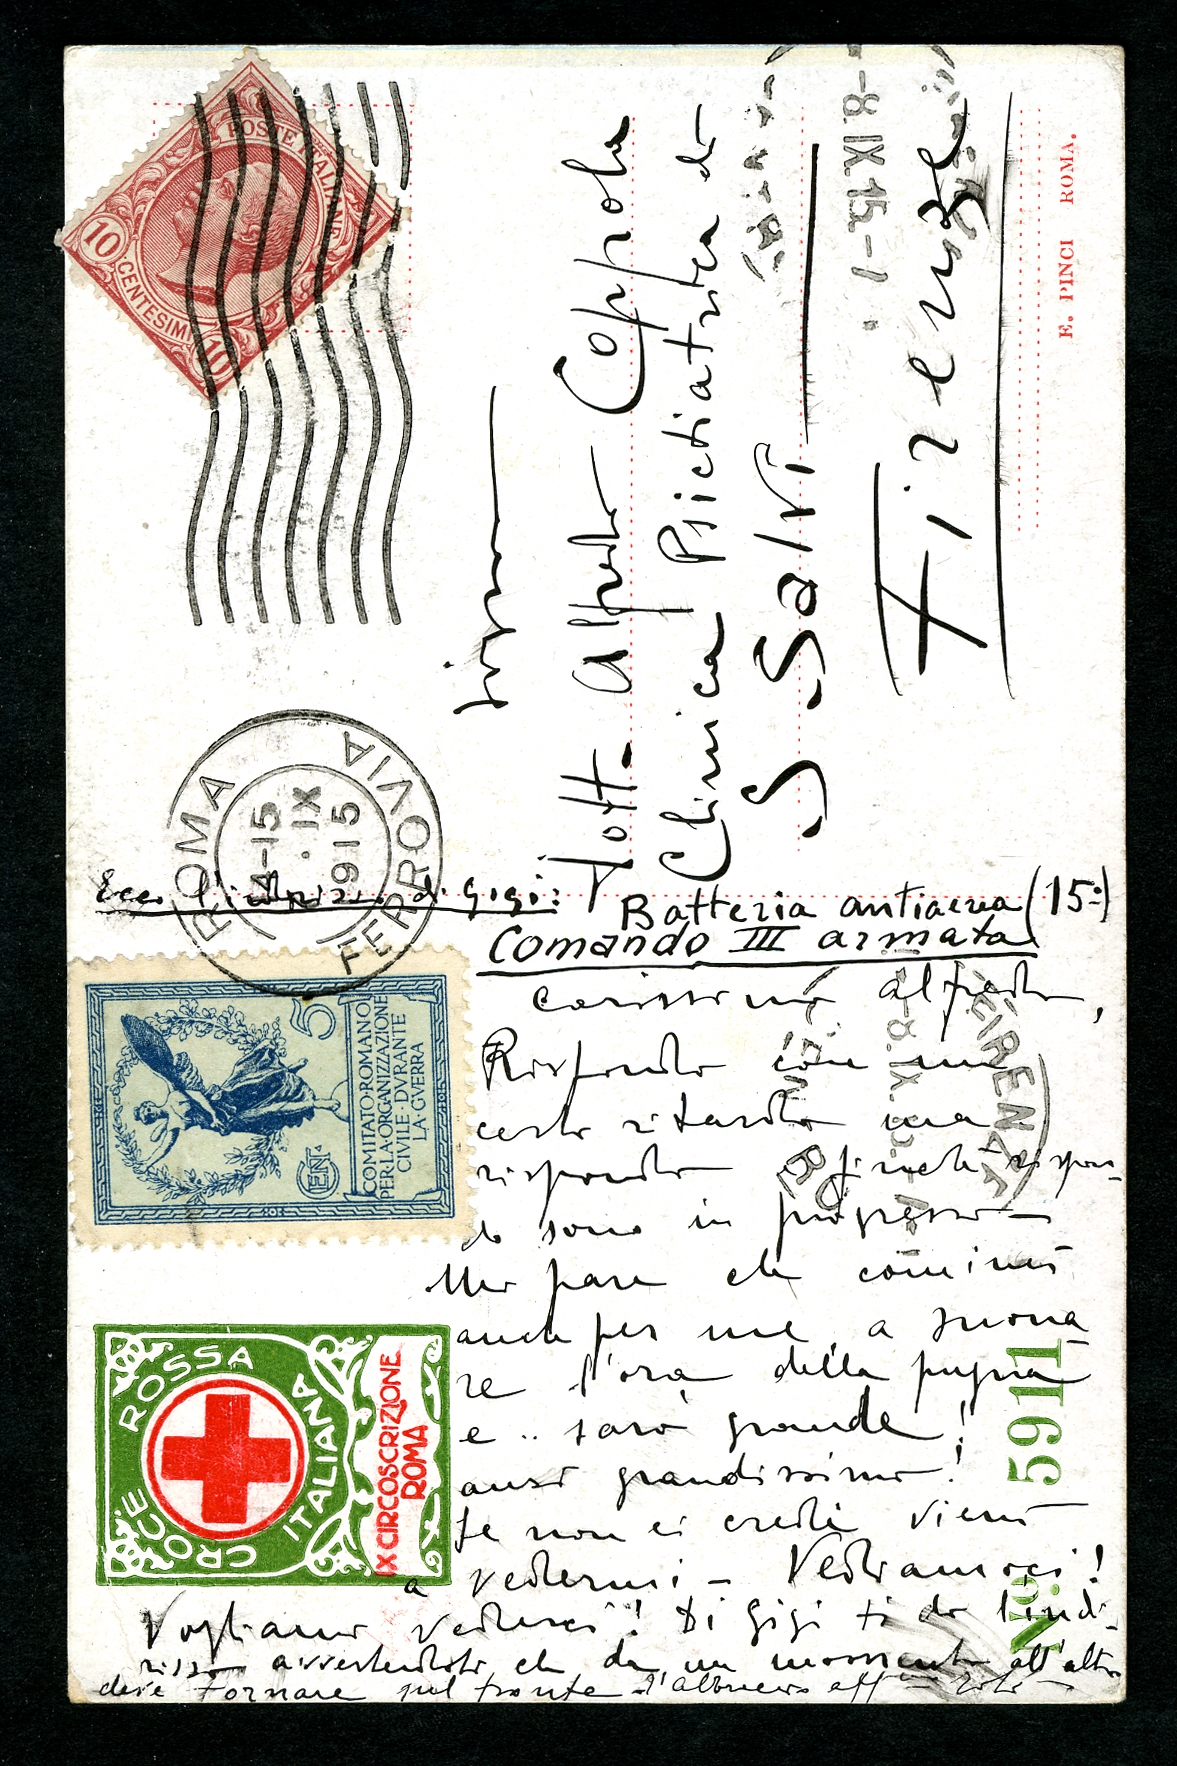 POSTE ITALIANE
10
CENTESIMI
10
ROMA
FERROVIA
4-15
IX
915
-8.IX.15.-1
Dott. Alfredo Coppola
Clinica Psichiatrica di
S. Salvi
Firenze
E. PINCI ROMA.
Ecco l'indirizzo di Gigi:
Batteria antiaerea (15ª)
Comando III armata
COMITATO·ROMANO
PER·LA·ORGANIZZAZIONE
CIVILE·DVRANTE
LA·GVERRA
5
CENT
FIRENZE
-8.IX
carissimo Alfredo,
Rispondo con un
certo ritardo ma
rispondo e finché rispon-
do sono in progresso –
Mi pare che cominci
anche per me a suona
re l'ora della pugna
e .. sarò grande!
anzi grandissimo!
Se non ci credi vieni
a vedermi – Vediamoci!
Vogliamo vederci! Di Gigi ti do l'indi-
rizzo avvertendoti che da un momento all'altro
deve tornare sul fronte
CROCE ROSSA
ITALIANA
IX CIRCOSCRIZIONE
ROMA
No 5911